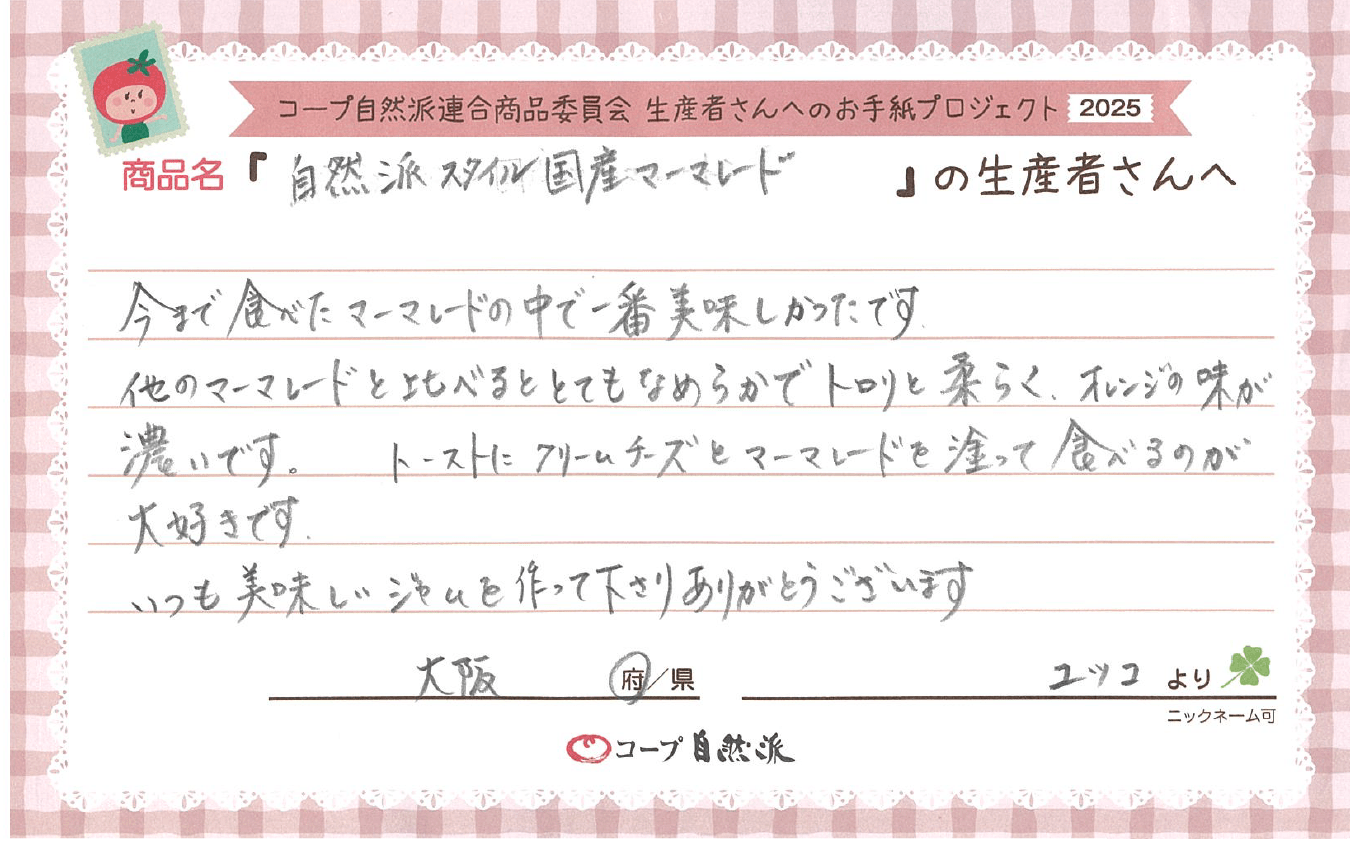 コープ自然派連合商品委員会 生産者さんへのお手紙プロジェクト 2025
商品名『自然派スタイル国産マーマレード』の生産者さんへ
今まで食べたマーマレードの中で一番美味しかったです.
他のマーマレードと比べるととてもなめらかでトロリと柔らく、オレンジの味が
濃いです。 トーストにクリームチーズとマーマレードを塗って食べるのが
大好きです.
いつも美味しいジャムを作って下さりありがとうございます
大阪 府/県 ユッコ より
ニックネーム可
コープ自然派